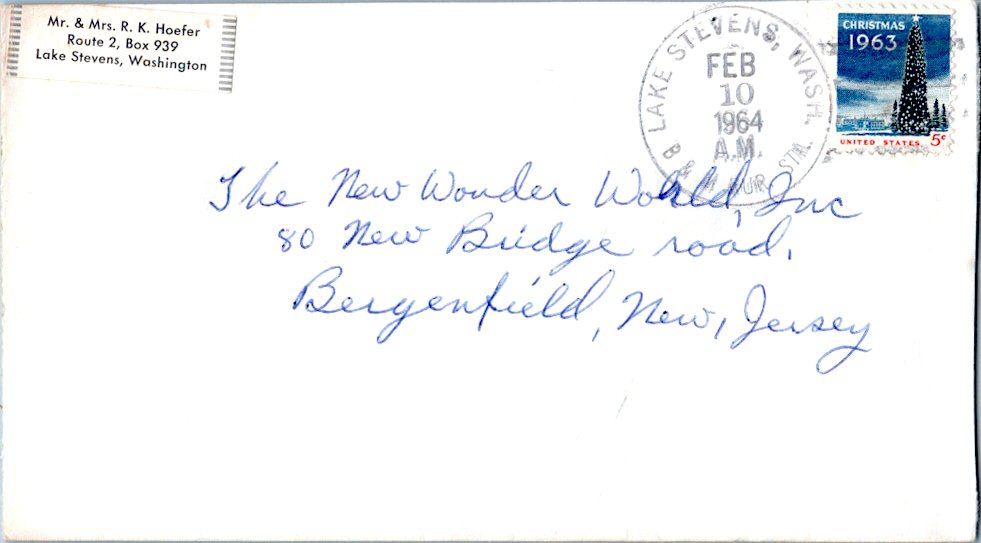 Mr. & Mrs. R. K. Hoefer
Route 2, Box 939
Lake Stevens, Washington
LAKE STEVENS, WASH.
FEB
10
1964
A.M.
STA.
CHRISTMAS
1963
UNITED STATES 5c
The New Wonder World, Inc
80 New Bridge road.
Bergenfield, New, Jersey